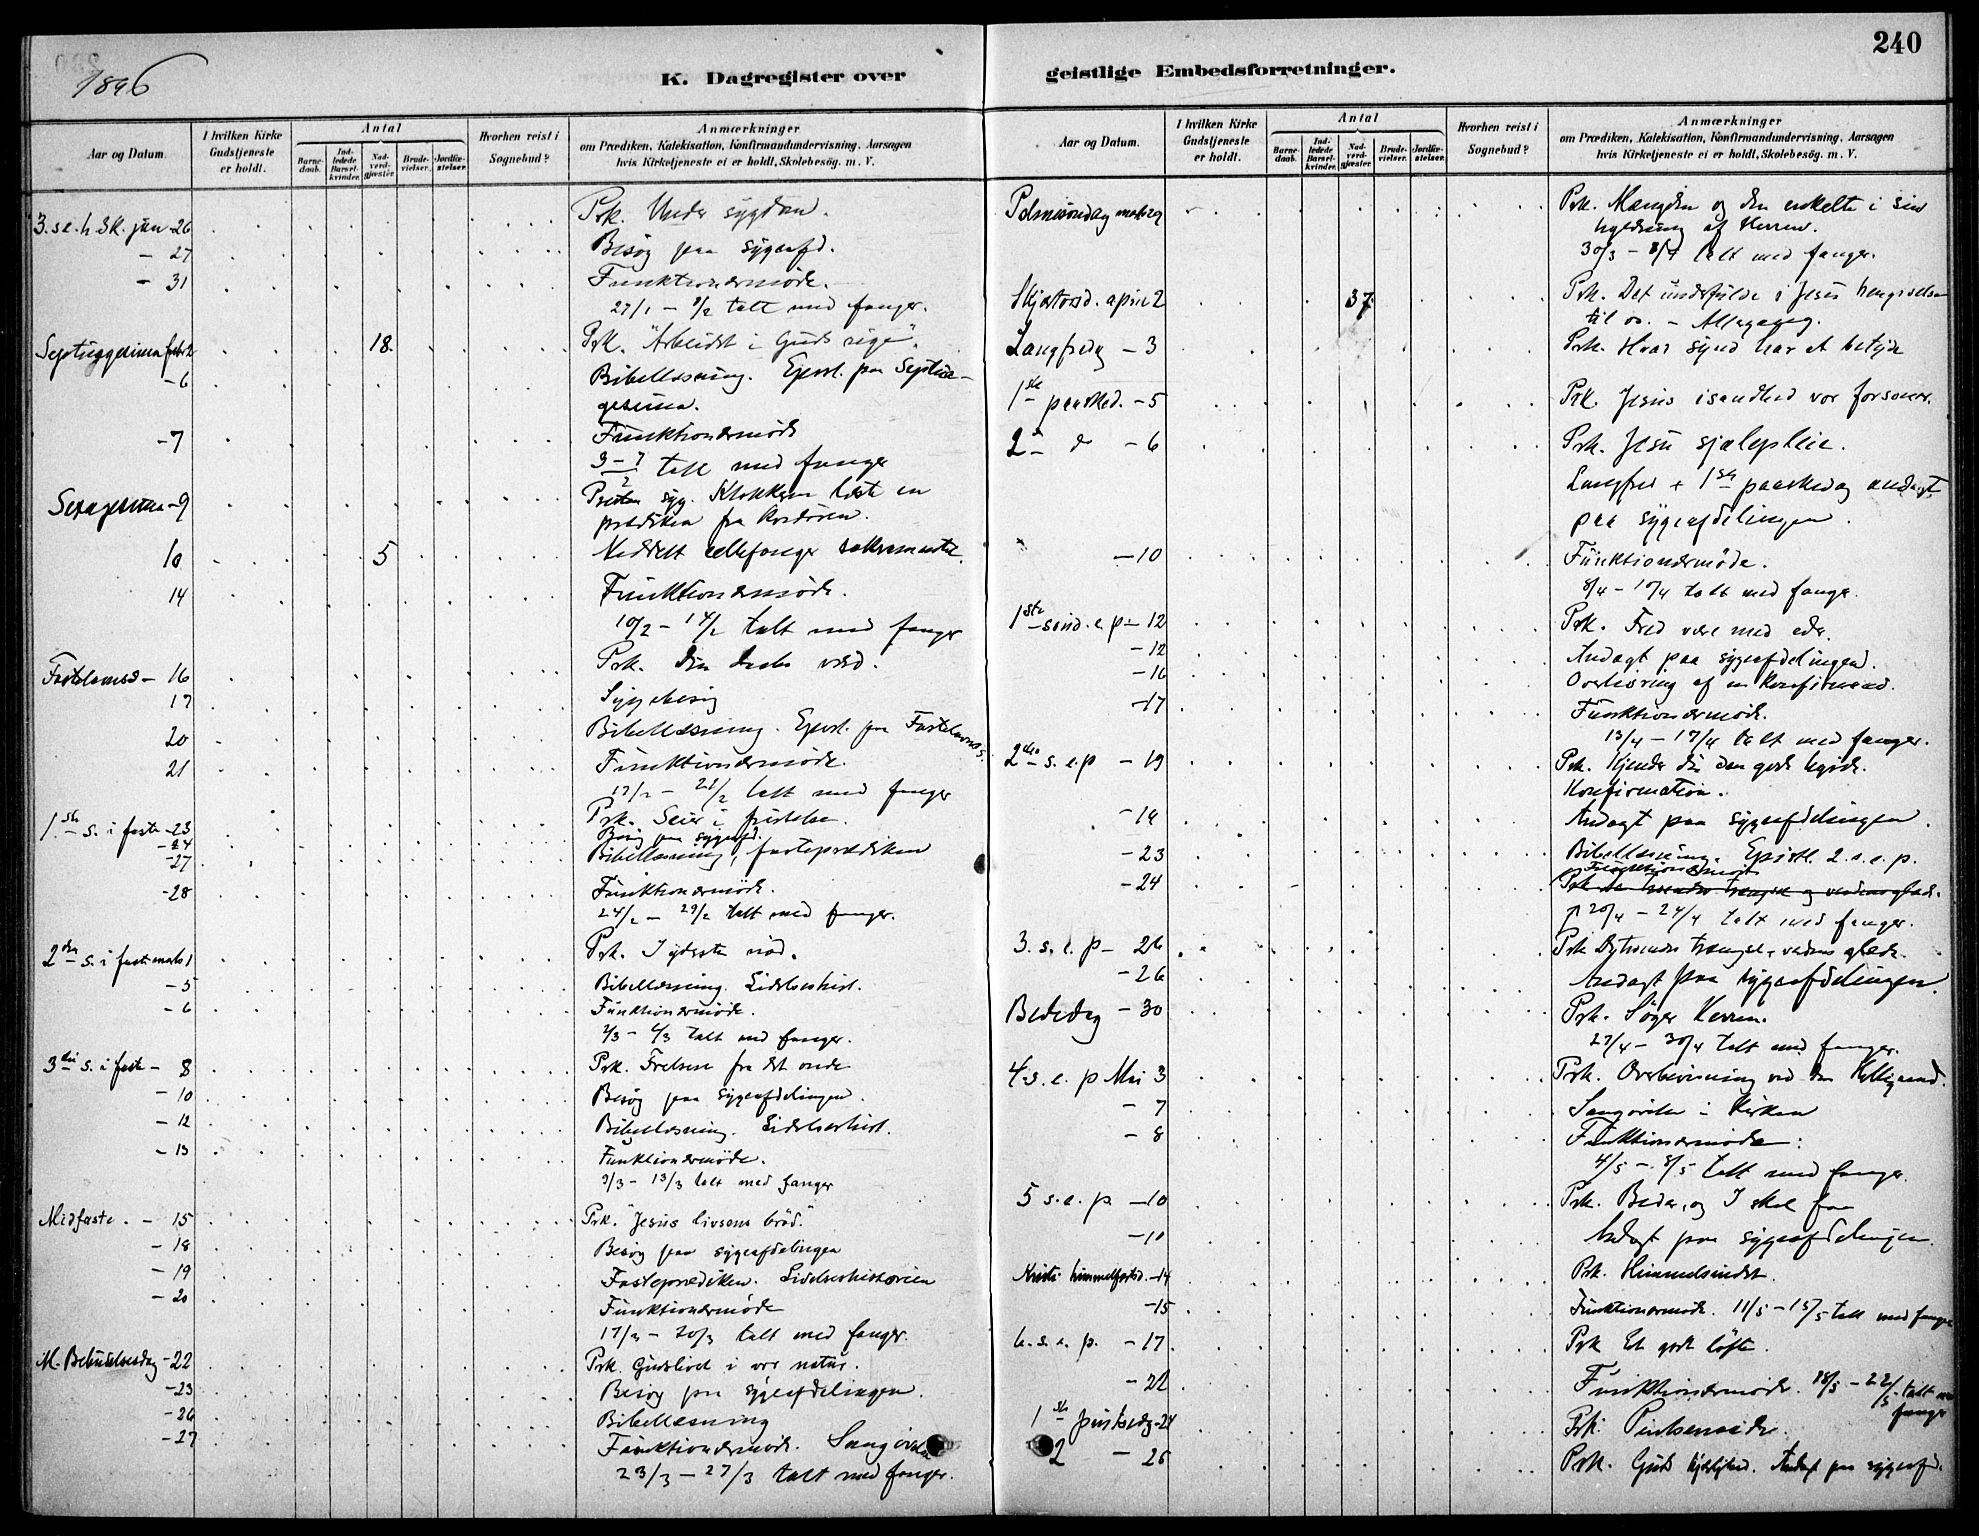 240
1896
K. Dagregister over
geistlige Embedsforretninger.
Aar og Datum.
I hvilken Kirke Gudstjeneste er holdt.
Antal
Barnedaab.
Indledede Barselkvinder.
Nadverdgjæster.
Brudevielser.
Jordfæstelser.
Hvorhen reist i Sognebud?
Anmærkninger
om Prædiken, Katekisation, Konfirmandundervisning, Aarsagen
hvis Kirketjeneste ei er holdt, Skolebesøg. m. V.
3. s. e. h. 3K. jan - 26 Prk. Under sygdom.
- 27 Besøg paa sygeafd.
- 31 Funktionærmøde.
27/1 - 1/2 talt med fanger.
Septuagesima febr 2 18. Prk. "Arbeidet i Guds rige".
- 6 Bibellæsning. Epist. paa Septua-
gesima.
- 7 Funktionærmøde
3-7/2 talt med fanger
Sexagesima - 9 Presten syg. Klokkeren læste en
prædiken fra kordøren.
10 5 Meddelt cellefanger sakramentet.
14 Funktionærmøde.
10/2 - 14/2 talt med fanger
Fastelavnsd - 16 Prk. Din daabs værd.
17 Sygebesøg
20 Bibellæsning. Epist. paa Fastelavnss.
21 Funktionærmøde.
17/2 - 21/2 talt med fanger
1ste s. i faste - 23 Prk. Seier i fristelse.
- 24 Besøg paa sygeafd.
- 27 Bibellæsning, fasteprædiken
- 28 Funktionærmøde.
24/2 - 29/2 talt med fanger.
2den s. i faste marts 1 Prk. I yderste nød.
- 5 Bibellæsning. Lidelseshist.
- 6 Funktionærmøde.
2/3 - 6/3 talt med fanger.
3die s. i faste - 8 Prk. Frelsen fra det onde
- 10 Besøg paa sygeafdelingen.
- 12 Bibellæsning. Lidelseshist.
- 13 Funktionærmøde.
9/3 - 13/3 talt med fanger
Midfaste. - 15 Prk. "Jesus livsens brød."
- 18 Besøg paa sygeafdelingen
- 19 Fasteprædiken. Lidelseshistorien
- 20 Funktionærmøde
17/3 - 20/3 talt med fanger.
M. Bebudelsesdag - 22 Prk. Gudslivet i vor natur.
- 23 Besøg paa sygeafdelingen.
- 26 Bibellæsning
- 27 Funktionærmøde.
23/3 - 27/3 talt med fanger.
Aar og Datum.
I hvilken Kirke Gudstjeneste er holdt.
Antal
Barnedaab.
Indledede Barselkvinder.
Nadverdgjæster.
Brudevielser.
Jordfæstelser.
Hvorhen reist i Sognebud?
Anmærkninger
om Prædiken, Katekisation, Konfirmandundervisning, Aarsagen
hvis Kirketjeneste ei er holdt, Skolebesøg. m. V.
Palmesøndag marts 29 Prk. Mængden og den enkelte i sin
hyldning af Herren.
30/3 - 8/4 talt med fanger.
Skjærtorsd. april 2 37. Prk. Det underfulde i Jesus hengivelse
til os. - Altergang.
Langfredag - 3 Prk. Hvad synd har at betyde
1ste paasked. - 5 Prk. Jesus isandhed vor forsoner.
2den do - 6 Prk. Jesu sjælepleie.
Langfred + 1ste paaskedag andagt
paa sygeafdelingen.
- 10 Funktionærmøde.
8/4 - 10/4 talt med fange.
1ste sønd. e. p - 12 Prk. Fred være med eder.
- 12 Andagt paa sygeafdelingen.
- 16 Overhøring af en konfirmand.
- 17 Funktionærmøde.
13/4 - 17/4 talt med fanger.
2den s. e. p - 19 Prk. Kjender du den gode hyrde.
Konfirmation.
- 19 Andagt paa sygeafdelingen.
- 23 Bibellæsning. Epistl. 2. s. e. p.
- 24 Funktionærmøde
20/4 - 24/4 talt med fanger.
3. s. e. p - 26 Prk
- 26 Andagt paa sygeafdelingen.
Bededag - 30 Prk. Søger Herren.
27/4 - 30/4 talt med fanger.
4. s. e. p Mai 3 Prk. Overbevisning ved den Helligaand.
- 7 Sangøvelse i kirken
- 8 Funktionærmøde.
4/5 - 8/5 talt med fanger.
5 s. e. p. - 10 Prk. Beder, og I skal faa
- 10 Andagt paa sygeafdelingen.
Kristi himmelfartsd. - 14 Prk. Himmelsindet.
- 15 Funktionærmøde. 11/5 - 15/5 talt med fanger
6. s. e. p. - 17. Prk Et godt løfte.
- 22 Funktionærmøde. 18/5 - 22/5 talt med
fanger
1ste pintsedag - 24 Prk.
2 - 25 Prk. Guds kjærlighed. Andagt paa sygeafd.